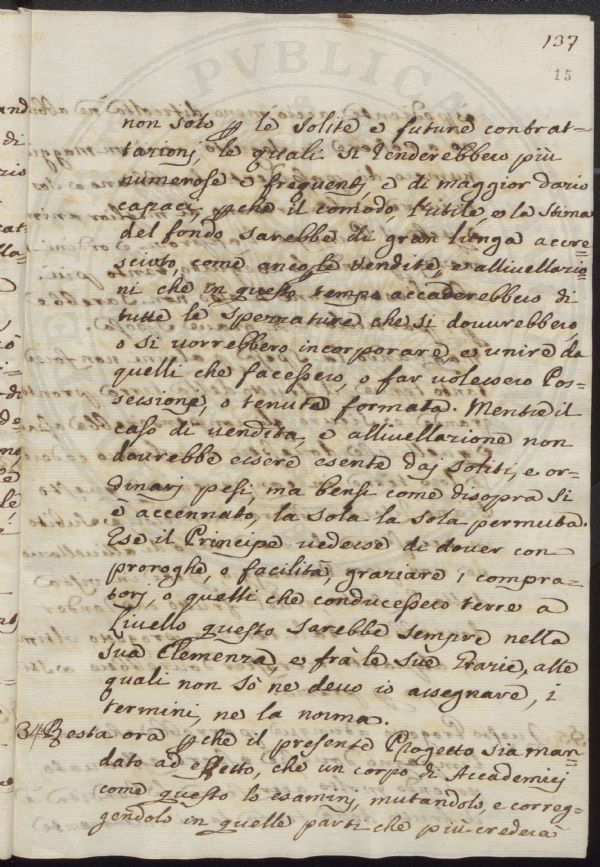 137
15
non solo p le solite e future contrat=
tazionj, le quali si renderebbero più
numerose e frequentj, e di maggior dazio
capaci, pche il comodo, l'utile, e la stima
del fondo sarebbe di gran lunga accre=
sciuto, come anco p le vendite, e allivellazio=
ni che in questo tempo accaderebbero di
tutte le spezzature che si dovurebbero,
o si vorrebbero incorporare e unire da
quelli che facessero, o far volessero Pos=
sessione, o tenuta formata. Mentre il
caso di vendita, e allivellazione non
dovrebbe essere esente daj soliti, e or=
dinarj pesi, ma bensi come disopra si
è accennato, la sola la sola permuta.
E se il Principe vedesse di dover con
proroghe, o facilità, graziare i compra=
torj, o quelli che conducessero terre a
Livello questo sarebbe sempre nella
sua Clemenza, e frà le sue Grazie, alle
quali non sò ne devo io assegnare, i
termini, ne la norma.
34 Resta ora pche il presente Progetto sia man=
dato ad effetto, che un corpo di Accademicj
come questo lo esaminj, mutandolo, e correg=
gendolo in quelle parti che più crederà
PVBLICA